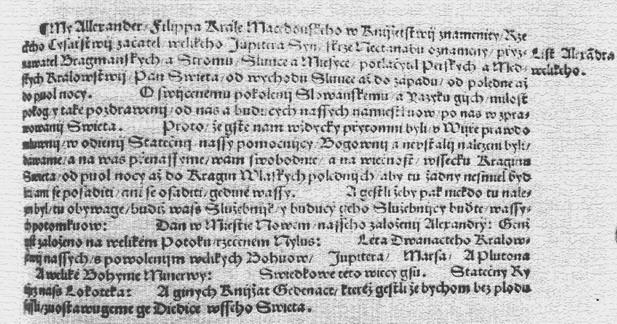 ¶My Allexander / Filippa Krále Macedonského w Knijžetstwij znamenitý / Rže-
ckého Cysařstwij začátel / welikého Jupitera Syn / skrze Nectanabu oznámený / přiz-
nawatel Bragmanských a Stromů / Slunce a Měsýce / potlačytel Perských a Méd-
ských Kralowstwij / Pan Swěta / od wýchodu Slunce až do západu / od poledne až
do půl nocy. O swijcenému pokolenij Slowanskému / a Yazyku gých / milost
pokog / y také pozdrawenij / od nás a budaucých nassých náměstkuow / po nás w zpra-
wowánij Swěta. Proto / že gste nám wždycky přytomni byli / w Wijře prawdo-
mluwnij / w oděnij Statečnij / nassy pomocnijcy / Bogownij a neustálij nalezeni byli /
dáwáme / a na wás přenássýme / wám swobodně / a na wěčnost / wssecku Kraginu
Swěta / od půl nocy až do Kragin Wlaských poledných / aby tu žádný nesměl býd-
leti ani se posaditi / ani se osaditi / gediné wassý. A gestli žeby pak někdo tu nale-
zen byl / tu obýwage / budiž wáss Služebnijk / y buducý geho Služebnijcy buďte / wassý-
ch potomkuow: Dán w Městě Nowém / nasseho založenij Alexandrij: Genž
gest založeno na welikém Potoku / rzečeném Nylus: Léta Dwanáctého Kralow-
stwij nassých / s powolenijm welikých Bohuow / Jupitera / Marsa / A Plutona
A weliké Bohyně Minerwy: Swědkowé této wěcy gsú. Statečný Ry-
tijř náss Lokotéka: A giných Knijžat Gedenáct / kteréž gestli že bychom bez plodu
sessli / zuostawugeme ge Dědice wsseho Swěta.
List Alexãdra
welikého.